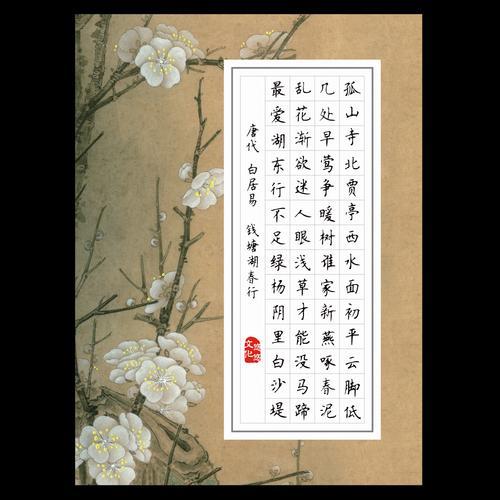 孤山寺北贾亭西水面初平云脚低
几处早莺争暖树谁家新燕啄春泥
乱花渐欲迷人眼浅草才能没马蹄
最爱湖东行不足绿杨阴里白沙堤
唐代 白居易 钱塘湖春行
悠悠
文化